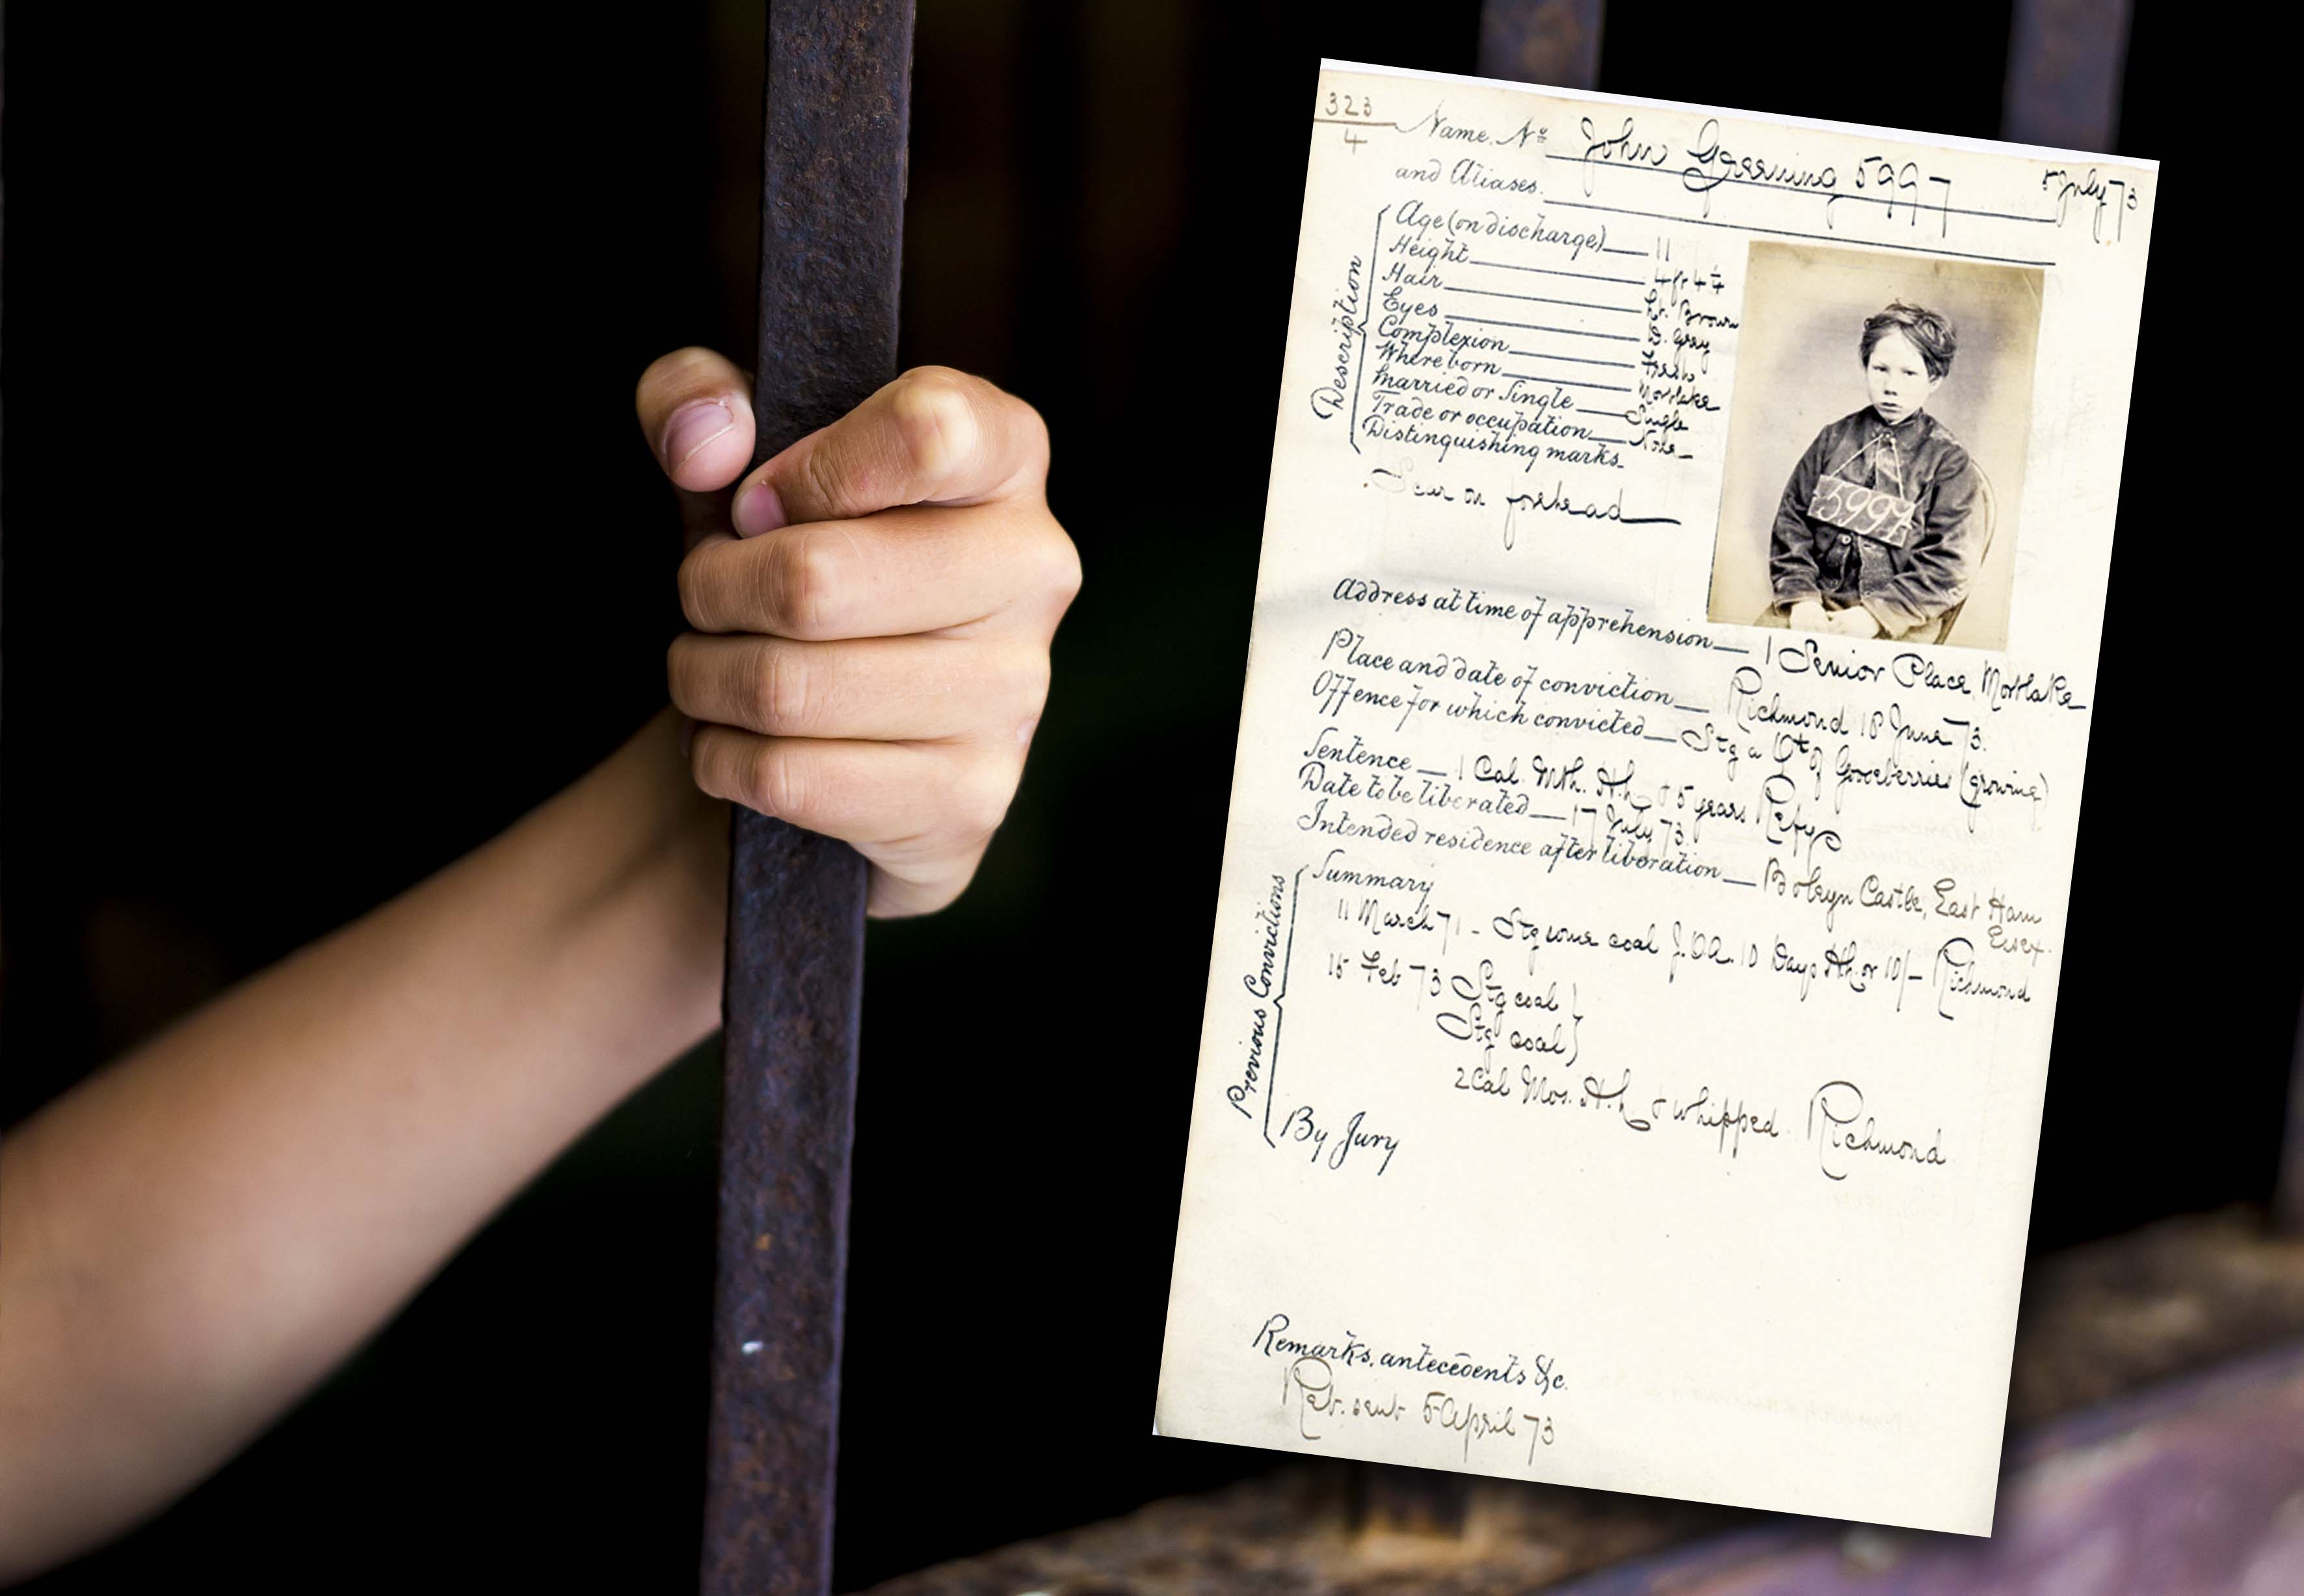 323
4
Name. No John Greening 5997 5 July 73
and Aliases.
Description
Age (on discharge) 11
Height 4 ft 4 1/4
Hair Lt. Brown
Eyes D. Gray
Complexion Fresh
Where born Mortlake
Married or Single Single
Trade or occupation None
Distinguishing marks.
Scar on forehead
5997
Address at time of apprehension 1 Senior Place, Mortlake
Place and date of conviction Richmond 18 June 73.
Offence for which convicted Stg a Qt of Gooseberries (growing)
Sentence 1 Cal. Mth. H.h & 5 years Refy
Date to be liberated 17 July 73
Intended residence after liberation Boleyn Castle, East Ham
Essex.
Previous Convictions
Summary
11 March 71 - Stg some coal J.O.A. 10 Days H.h. or 10/- Richmond
15 Feb 73 Stg coal }
Stg coal }
2 Cal Mos. H.h & whipped. Richmond
By Jury
Remarks, antecedents &c.
Ret. sent 5 April 73